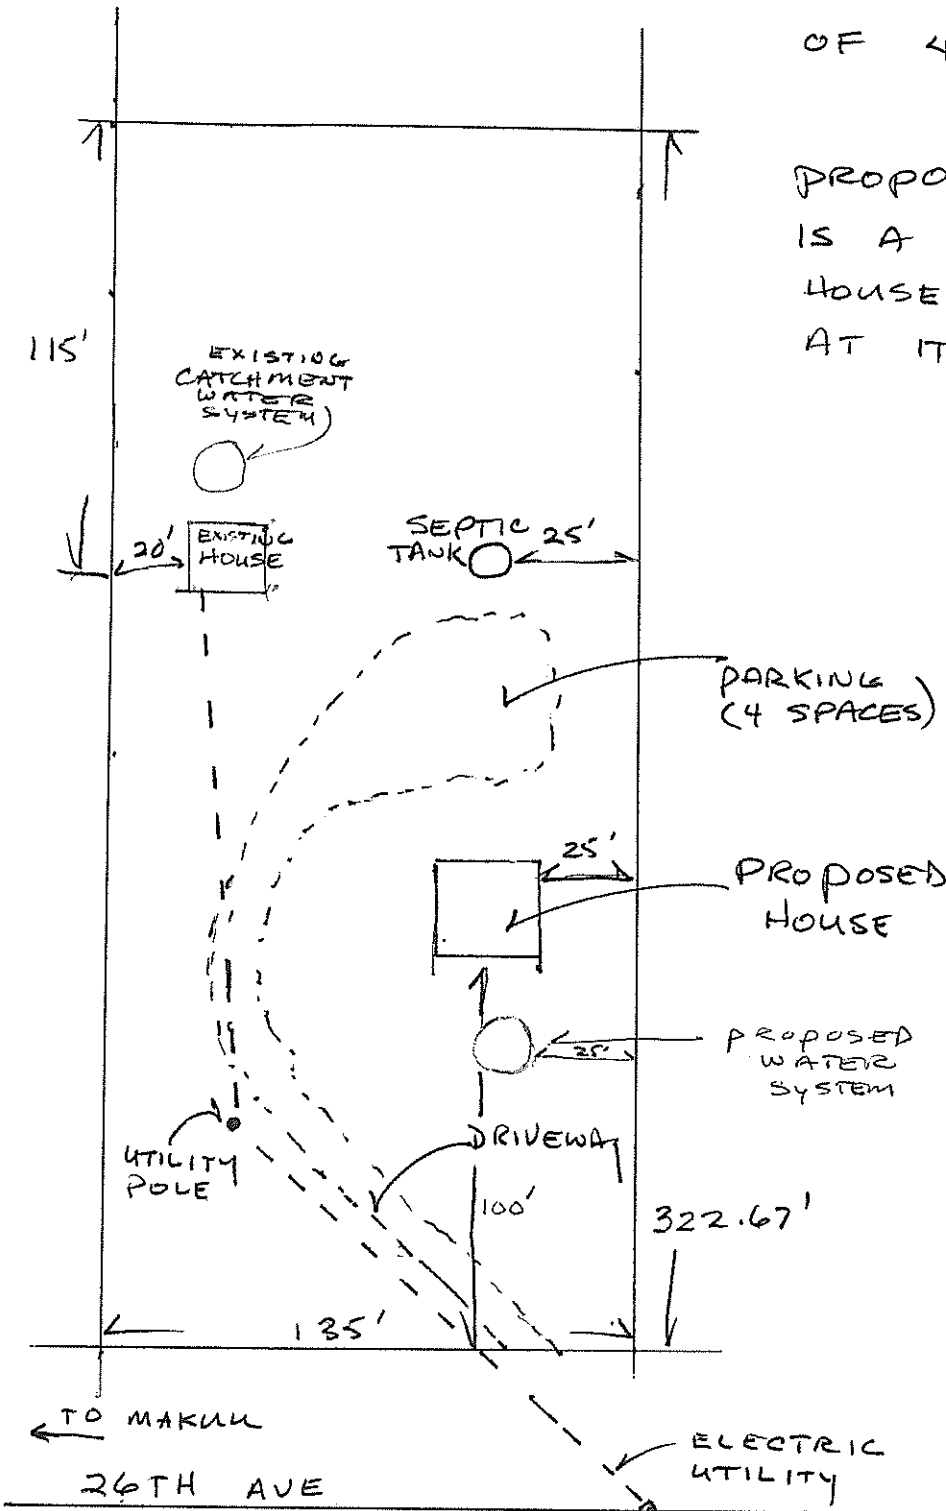 OF 4
PROPO
IS A
HOUSE
AT IT
115'
EXISTING
CATCHMENT
WATER
SYSTEM
20'
EXISTING
HOUSE
SEPTIC
TANK
25'
PARKING
(4 SPACES)
25'
PROPOSED
HOUSE
PROPOSED
WATER
SYSTEM
25'
UTILITY
POLE
DRIVEWAY
100'
322.67'
135'
TO MAKUU
26TH AVE
ELECTRIC
UTILITY